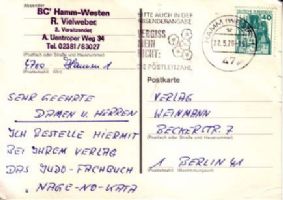 Absender
BC' Hamm-Westen
R. Vielweber
2. Vorsitzender
A. Uentroper Weg 34
Tel. 02381/83027
(Postfach oder Straße und Hausnummer)
4700 Hamm 1
(Postleitzahl)
BITTE AUCH IN DER
ABSENDERANGABE
VERGISS
MEIN
NICHT:
DIE POSTLEITZAHL
HAMM
47
Postkarte
SEHR GEEHRTE
DAMEN U. HERREN
ICH BESTELLE HIERMIT
BEI IHREM VERLAG
DAS JUDO-FACHBUCH
NAGE-NO-KATA
VERLAG
WEINMANN
BECKERSTR. 7
(Postfach oder Straße und Hausnummer)
1 BERLIN 41
(Postleitzahl) (Bestimmungsort)